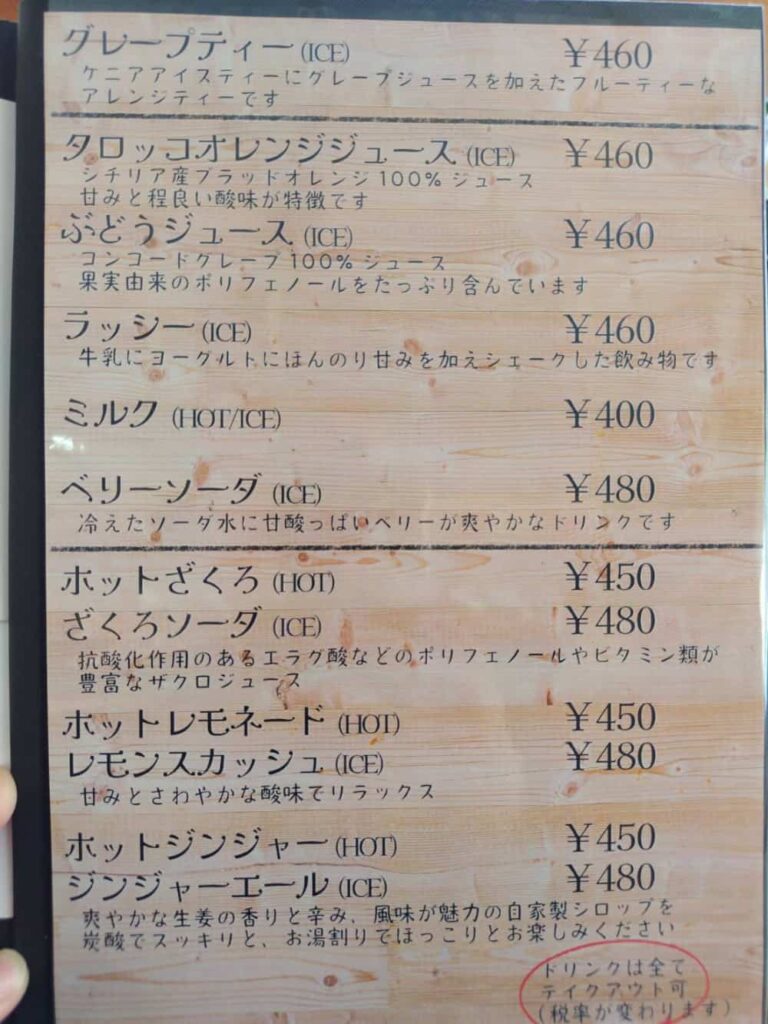 グレープティー (ICE) ￥460
ケニアアイスティーにグレープジュースを加えたフルーティーな
アレンジティーです
タロッコオレンジジュース (ICE) ￥460
シチリア産ブラッドオレンジ100% ジュース
甘みと程良い酸味が特徴です
ぶどうジュース (ICE) ￥460
コンコードグレープ100% ジュース
果実由来のポリフェノールをたっぷり含んでいます
ラッシー (ICE) ￥460
牛乳にヨーグルトにほんのり甘みを加えシェークした飲み物です
ミルク (HOT/ICE) ￥400
ベリーソーダ (ICE) ￥480
冷えたソーダ水に甘酸っぱいベリーが爽やかなドリンクです
ホットざくろ (HOT) ￥450
ざくろソーダ (ICE) ￥480
抗酸化作用のあるエラグ酸などのポリフェノールやビタミン類が
豊富なザクロジュース
ホットレモネード (HOT) ￥450
レモンスカッシュ (ICE) ￥480
甘みとさわやかな酸味でリラックス
ホットジンジャー (HOT) ￥450
ジンジャーエール (ICE) ￥480
爽やかな生姜の香りと辛み、風味が魅力の自家製シロップを
炭酸でスッキリと、お湯割りでほっこりとお楽しみください
ドリンクは全て
テイクアウト可
(税率が変わります)